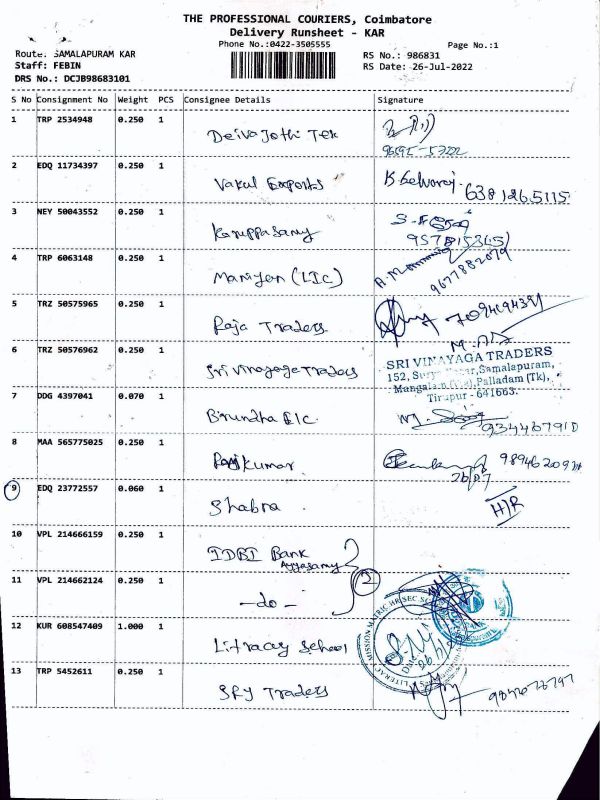 THE PROFESSIONAL COURIERS, Coimbatore
Delivery Runsheet - KAR
Phone No.:0422-3505555
Page No.:1
Route: SAMALAPURAM KAR
Staff: FEBIN
DRS No.: DCJB98683101
RS No.: 986831
RS Date: 26-Jul-2022
S No Consignment No Weight PCS Consignee Details Signature
1 TRP 2534948 0.250 1 Deiva Jothi Tex
2 EDQ 11734397 0.250 1 Vakul Exports 6381265115
3 NEY 50043552 0.250 1 Karuppasamy
4 TRP 6063148 0.250 1 Maniyan (LIC) 9677882079
5 TRZ 50575965 0.250 1 Raja Traders 7094694391
6 TRZ 50576962 0.250 1 Sri Vinayaga Traders
SRI VINAYAGA TRADERS
Samalapuram,
Palladam (Tk),
Tirupur - 641663.
7 DDG 4397041 0.070 1 Brindha LIC
8 MAA 565775025 0.250 1 Rajkumar
9 EDQ 23772557 0.060 1 Shabra H/R
10 VPL 214666159 0.250 1 IDBI Bank
Ayyasamy
11 VPL 214662124 0.250 1 - do - 2
12 KUR 608547409 1.000 1 Litracy School
13 TRP 5452611 0.250 1 SRY Traders